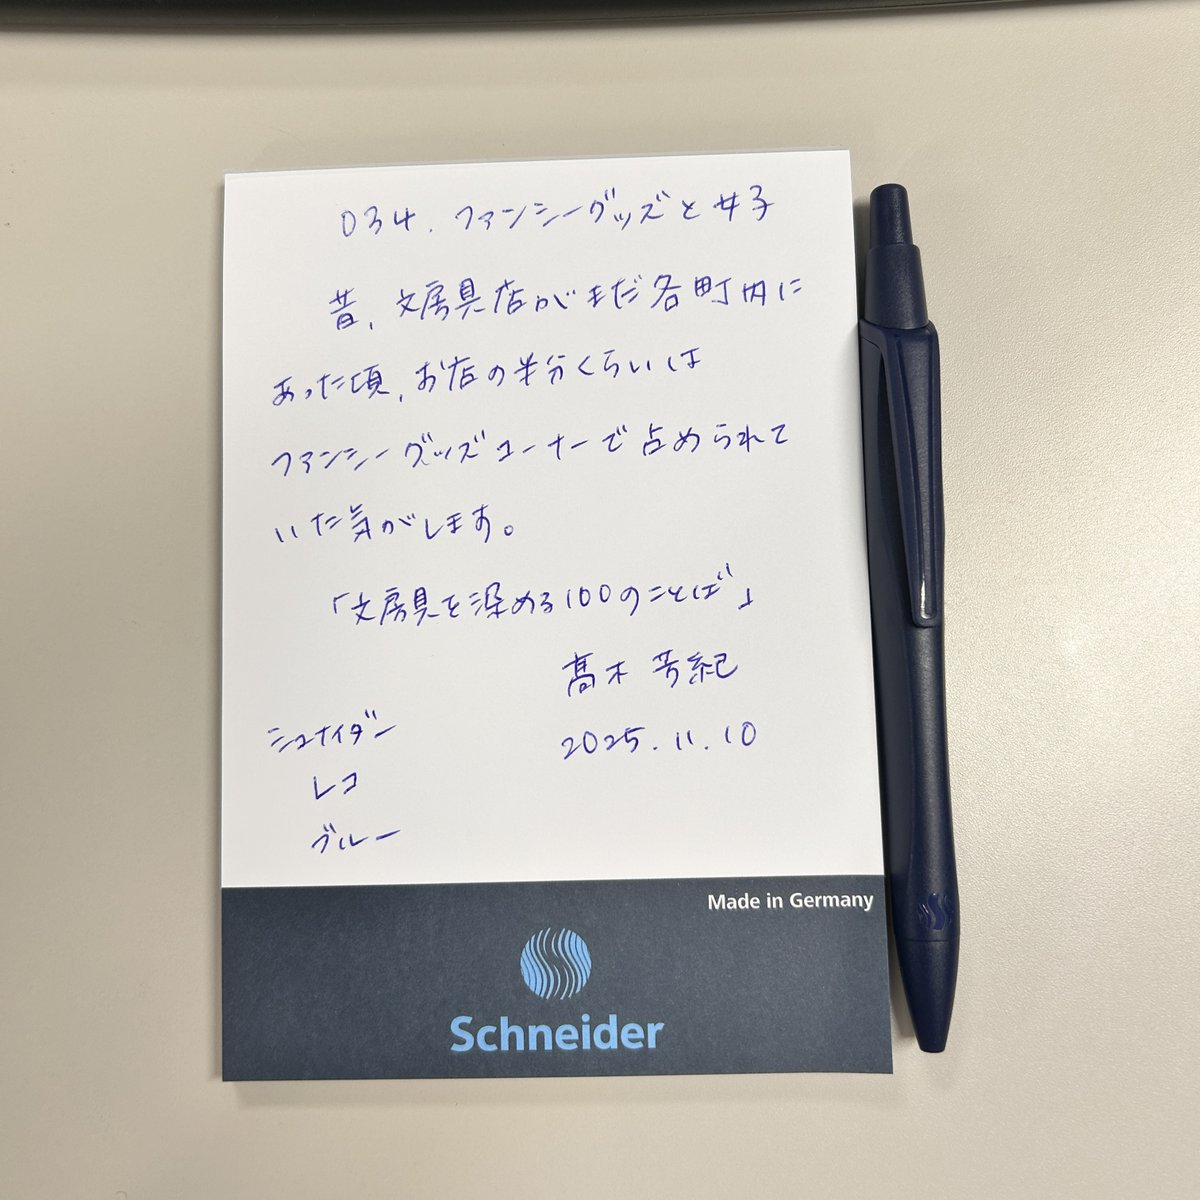 034. ファンシーグッズと女子
昔、文房具店がまだ各町内に
あった頃、お店の半分くらいは
ファンシーグッズコーナーで占められて
いた気がします。
「文房具を深める100のことば」
髙木 芳紀
2025.11.10
シュナイダー
レコ
ブルー
Made in Germany
Schneider